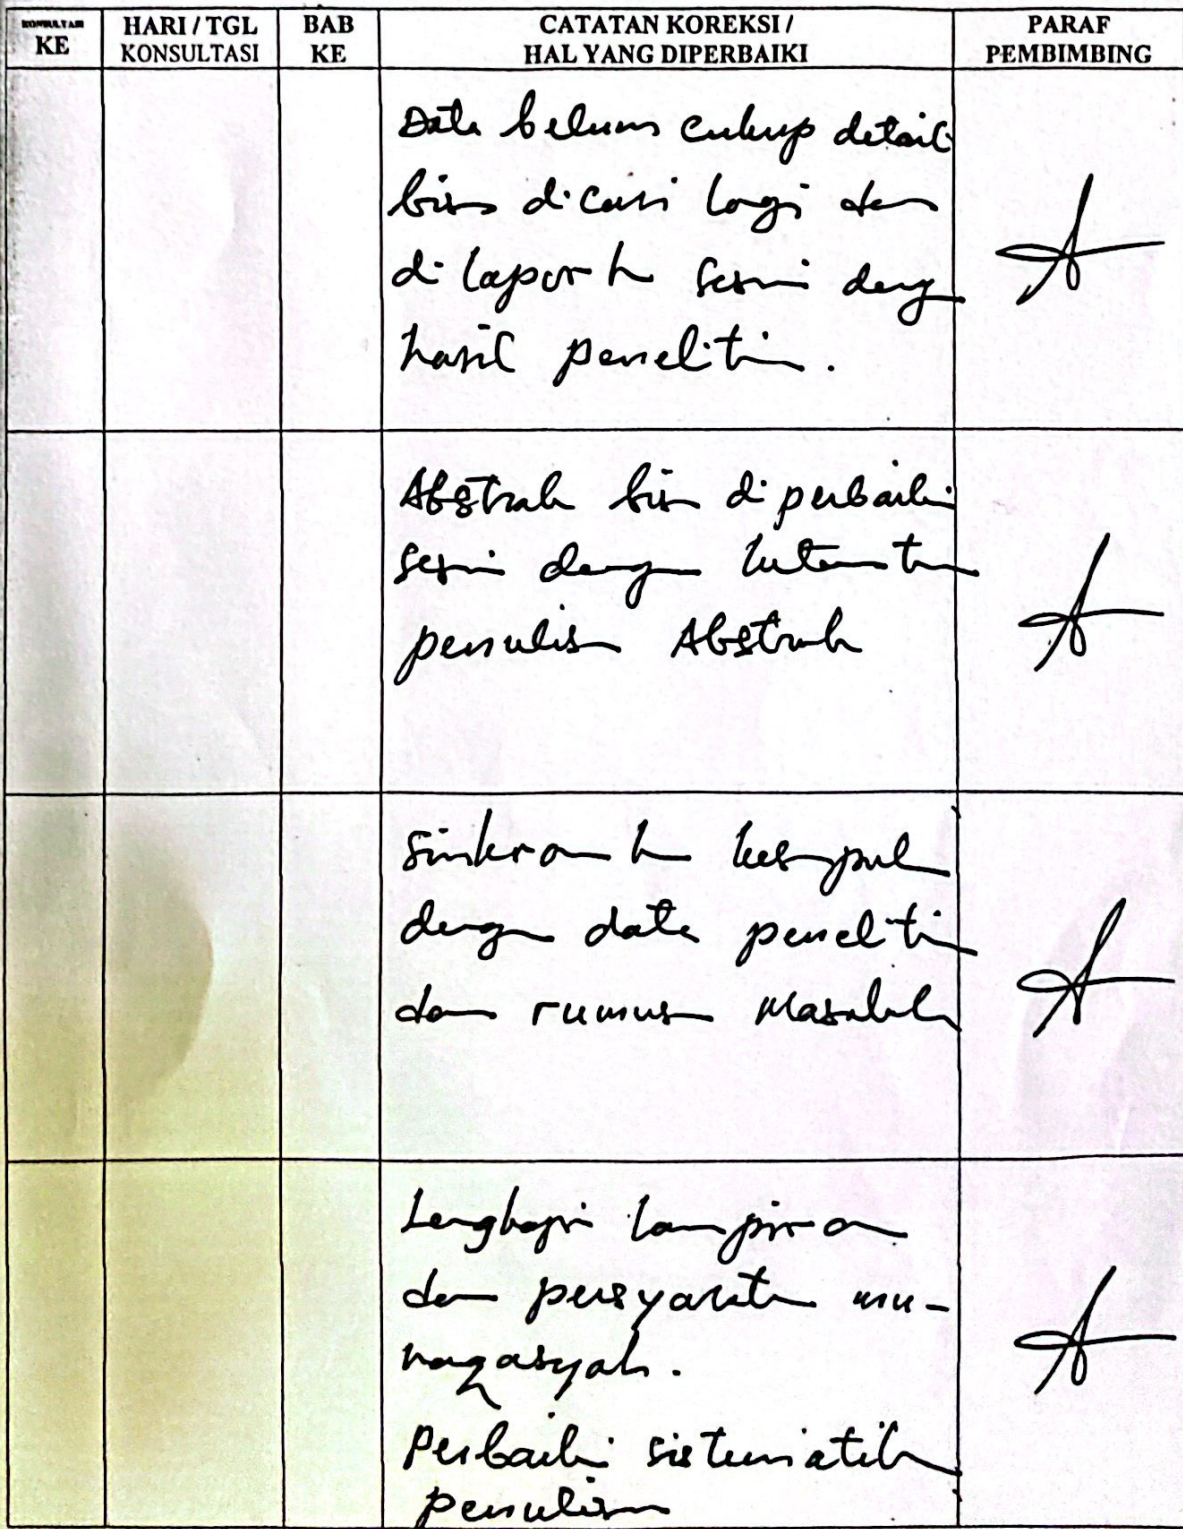 KONSULTASI KE
HARI / TGL KONSULTASI
BAB KE
CATATAN KOREKSI / HAL YANG DIPERBAIKI
PARAF PEMBIMBING
Data belum cukup detail
bisa dicari lagi dan
dilaporkan sesuai dengan
hasil penelitian.
Abstrak bisa diperbaiki
sesuai dengan ketentuan
penulisan Abstrak
Sinkronkan kesimpulan
dengan data penelitian
dan rumusan Masalah
Lengkapi lampiran
dan persyaratan mu-
naqasyah.
Perbaiki sistematika
penulisan